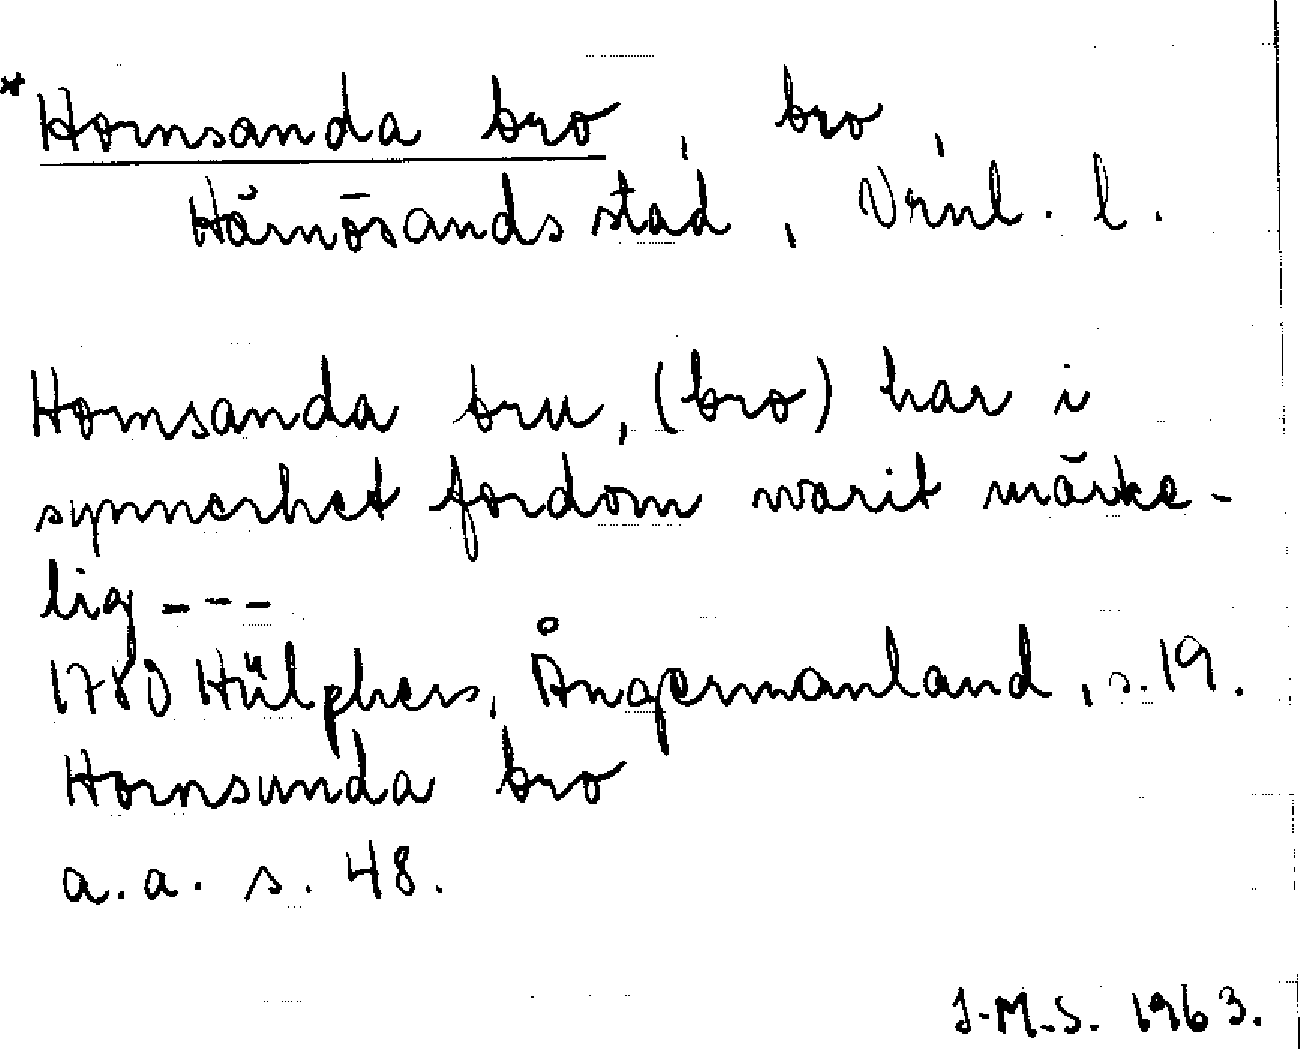 *Hornsanda bro, bro,
Härnösands stad, Vrnl. l.
Hornsanda bru, (bro) har i
synnerhet fordom warit märke-
lig ---
1780 Hülphers, Ångermanland, s. 19.
Hornsunda bro
a. a. s. 48.
J.M.S. 1963.